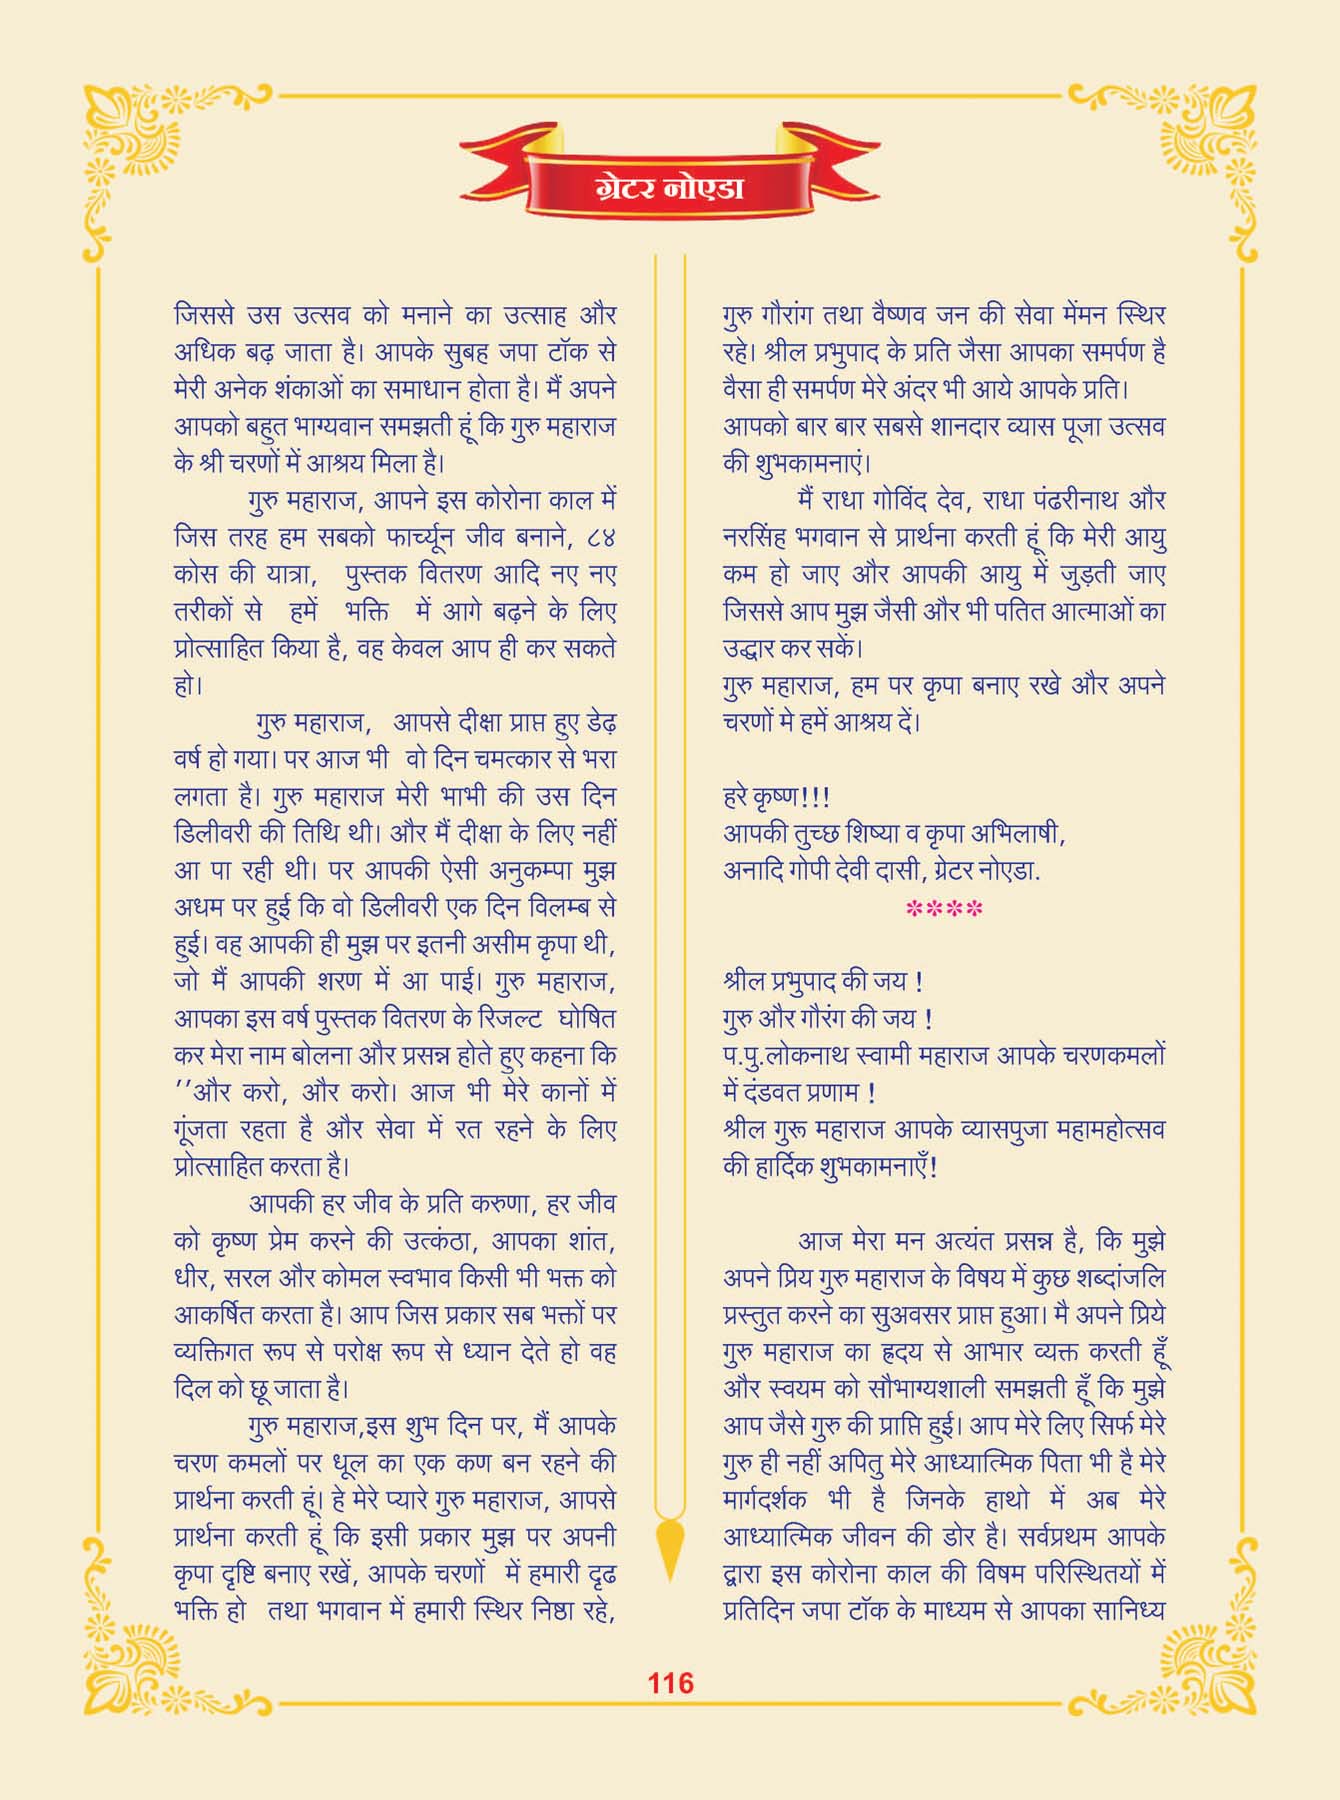 ग्रेटर नोएडा
जिससे उस उत्सव को मनाने का उत्साह और
अधिक बढ़ जाता है। आपके सुबह जपा टॉक से
मेरी अनेक शंकाओं का समाधान होता है। मैं अपने
आपको बहुत भाग्यवान समझती हूं कि गुरु महाराज
के श्री चरणों में आश्रय मिला है।
गुरु महाराज, आपने इस कोरोना काल में
जिस तरह हम सबको फार्च्यून जीव बनाने, ८४
कोस की यात्रा, पुस्तक वितरण आदि नए नए
तरीकों से हमें भक्ति में आगे बढ़ने के लिए
प्रोत्साहित किया है, वह केवल आप ही कर सकते
हो।
गुरु महाराज, आपसे दीक्षा प्राप्त हुए डेढ़
वर्ष हो गया। पर आज भी वो दिन चमत्कार से भरा
लगता है। गुरु महाराज मेरी भाभी की उस दिन
डिलीवरी की तिथि थी। और मैं दीक्षा के लिए नहीं
आ पा रही थी। पर आपकी ऐसी अनुकम्पा मुझ
अधम पर हुई कि वो डिलीवरी एक दिन विलम्ब से
हुई। वह आपकी ही मुझ पर इतनी असीम कृपा थी,
जो मैं आपकी शरण में आ पाई। गुरु महाराज,
आपका इस वर्ष पुस्तक वितरण के रिजल्ट घोषित
कर मेरा नाम बोलना और प्रसन्न होते हुए कहना कि
’’और करो, और करो। आज भी मेरे कानों में
गूंजता रहता है और सेवा में रत रहने के लिए
प्रोत्साहित करता है।
आपकी हर जीव के प्रति करुणा, हर जीव
को कृष्ण प्रेम करने की उत्कंठा, आपका शांत,
धीर, सरल और कोमल स्वभाव किसी भी भक्त को
आकर्षित करता है। आप जिस प्रकार सब भक्तों पर
व्यक्तिगत रूप से परोक्ष रूप से ध्यान देते हो वह
दिल को छू जाता है।
गुरु महाराज,इस शुभ दिन पर, मैं आपके
चरण कमलों पर धूल का एक कण बन रहने की
प्रार्थना करती हूं। हे मेरे प्यारे गुरु महाराज, आपसे
प्रार्थना करती हूं कि इसी प्रकार मुझ पर अपनी
कृपा दृष्टि बनाए रखें, आपके चरणों में हमारी दृढ
भक्ति हो तथा भगवान में हमारी स्थिर निष्ठा रहे,
गुरु गौरांग तथा वैष्णव जन की सेवा मेंमन स्थिर
रहे। श्रील प्रभुपाद के प्रति जैसा आपका समर्पण है
वैसा ही समर्पण मेरे अंदर भी आये आपके प्रति।
आपको बार बार सबसे शानदार व्यास पूजा उत्सव
की शुभकामनाएं।
मैं राधा गोविंद देव, राधा पंढरीनाथ और
नरसिंह भगवान से प्रार्थना करती हूं कि मेरी आयु
कम हो जाए और आपकी आयु में जुड़ती जाए
जिससे आप मुझ जैसी और भी पतित आत्माओं का
उद्धार कर सकें।
गुरु महाराज, हम पर कृपा बनाए रखे और अपने
चरणों मे हमें आश्रय दें।
हरे कृष्ण!!!
आपकी तुच्छ शिष्या व कृपा अभिलाषी,
अनादि गोपी देवी दासी, ग्रेटर नोएडा.
****
श्रील प्रभुपाद की जय !
गुरु और गौरंग की जय !
प.पु.लोकनाथ स्वामी महाराज आपके चरणकमलों
में दंडवत प्रणाम !
श्रील गुरू महाराज आपके व्यासपुजा महामहोत्सव
की हार्दिक शुभकामनाएँ!
आज मेरा मन अत्यंत प्रसन्न है, कि मुझे
अपने प्रिय गुरु महाराज के विषय में कुछ शब्दांजलि
प्रस्तुत करने का सुअवसर प्राप्त हुआ। मै अपने प्रिये
गुरु महाराज का ह्रदय से आभार व्यक्त करती हूँ
और स्वयम को सौभाग्यशाली समझती हूँ कि मुझे
आप जैसे गुरु की प्राप्ति हुई। आप मेरे लिए सिर्फ मेरे
गुरु ही नहीं अपितु मेरे आध्यात्मिक पिता भी है मेरे
मार्गदर्शक भी है जिनके हाथो में अब मेरे
आध्यात्मिक जीवन की डोर है। सर्वप्रथम आपके
द्वारा इस कोरोना काल की विषम परिस्थितयों में
प्रतिदिन जपा टॉक के माध्यम से आपका सानिध्य
116